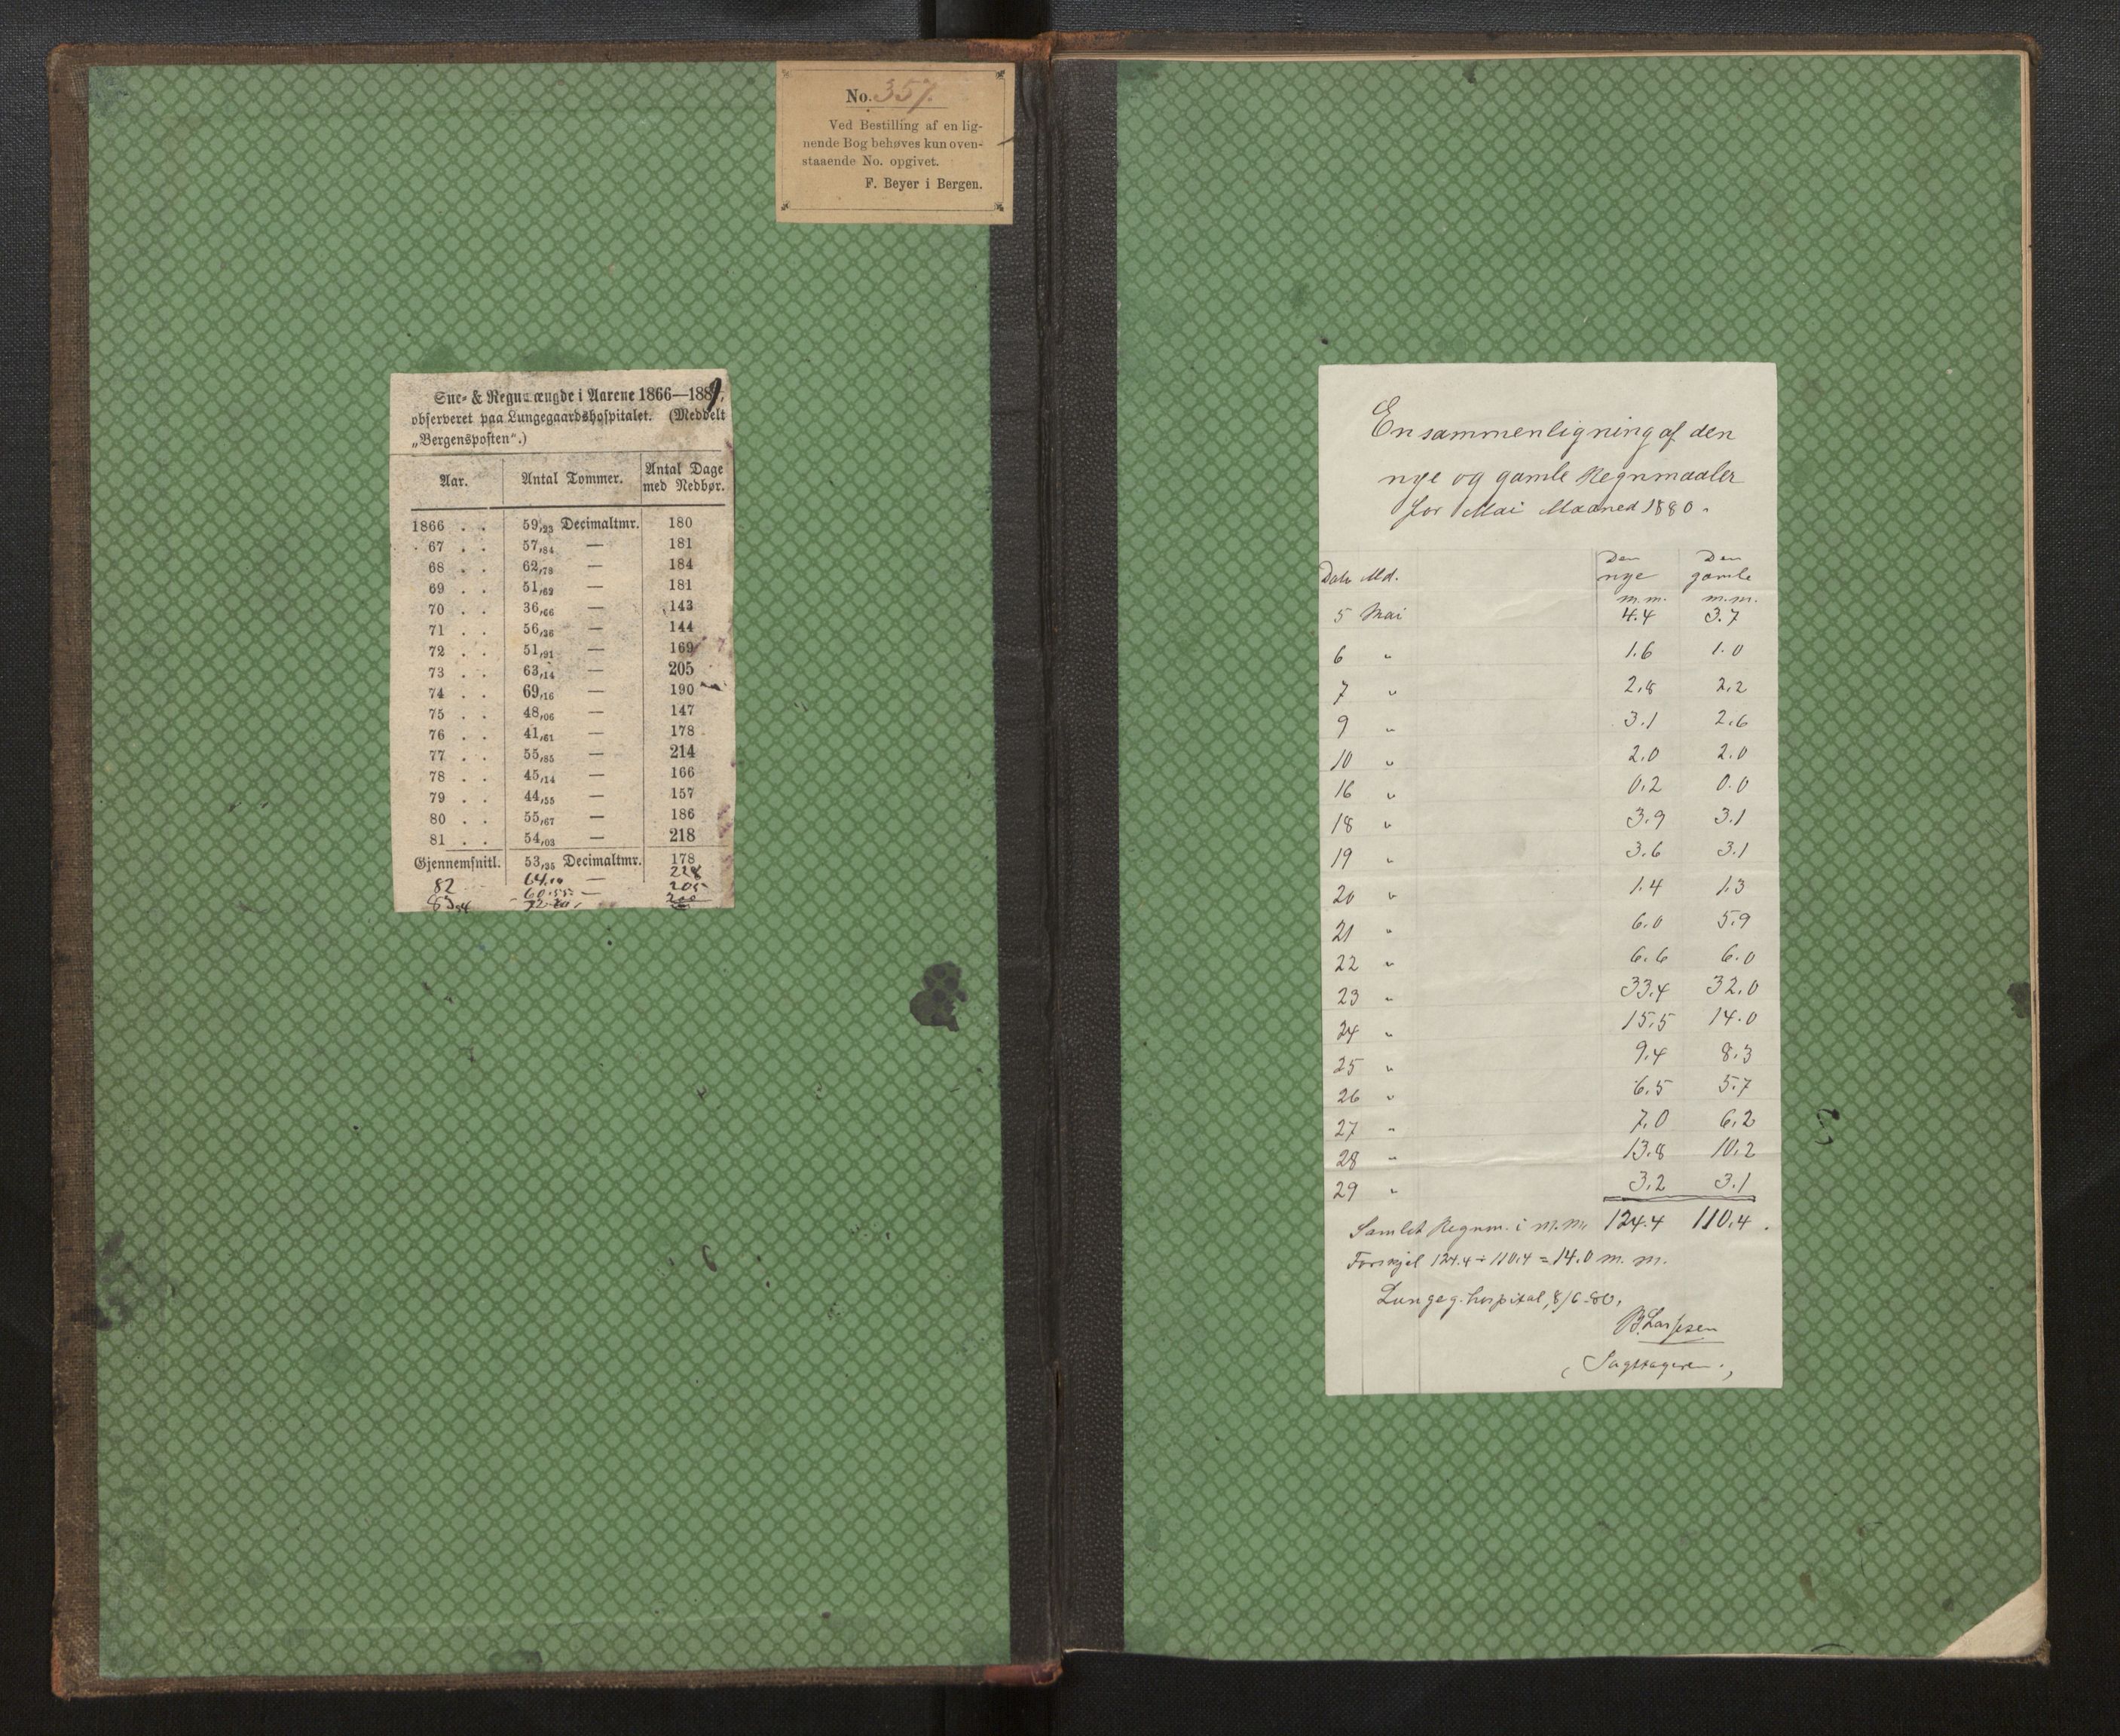 No. 357.
Ved Bestilling af en lig-
nende Bog behøves kun oven-
staaende No. opgivet.
F. Beyer i Bergen.
Sne- & Regnmængde i Aarene 1866—188
observeret paa Lungegaardshospitalet. (Meddelt
„Bergensposten“.)
Aar. Antal Tommer. Antal Dage med Nedbør.
1866 . . 59,93 Decimaltmr. 180
67 . . 57,84 — 181
68 . . 62,79 — 184
69 . . 51,62 — 181
70 . . 36,66 — 143
71 . . 56,36 — 144
72 . . 51,91 — 169
73 . . 63,14 — 205
74 . . 69,16 — 190
75 . . 48,06 — 147
76 . . 41,61 — 178
77 . . 55,85 — 214
78 . . 45,14 — 166
79 . . 44,55 — 157
80 . . 55,67 — 186
81 . . 54,03 — 218
Gjennemsnitl. 53,35 Decimaltmr. 178
82 — 228
83 60.55 — 205
En sammenligning af den
nye og gamle Regnmaaler
for Mai Maaned 1880.
Dato Md. Den nye Den gamle
m.m. m.m.
5 Mai 4.4 3.7
6 " 1.6 1.0
7 " 2.8 2.2
9 " 3.1 2.6
10 " 2.0 2.0
16 " 0.2 0.0
18 " 3.9 3.1
19 " 3.6 3.1
20 " 1.4 1.3
21 " 6.0 5.9
22 " 6.6 6.0
23 " 33.4 32.0
24 " 15.5 14.0
25 " 9.4 8.3
26 " 6.5 5.7
27 " 7.0 6.2
28 " 13.8 10.2
29 " 3.2 3.1
Samlet Regnm. i m.m. 124.4 110.4.
Forskjel 124.4 ÷ 110.4 = 14.0 m.m.
Lungeg.hospital, 8/6-80.
B. Larssen